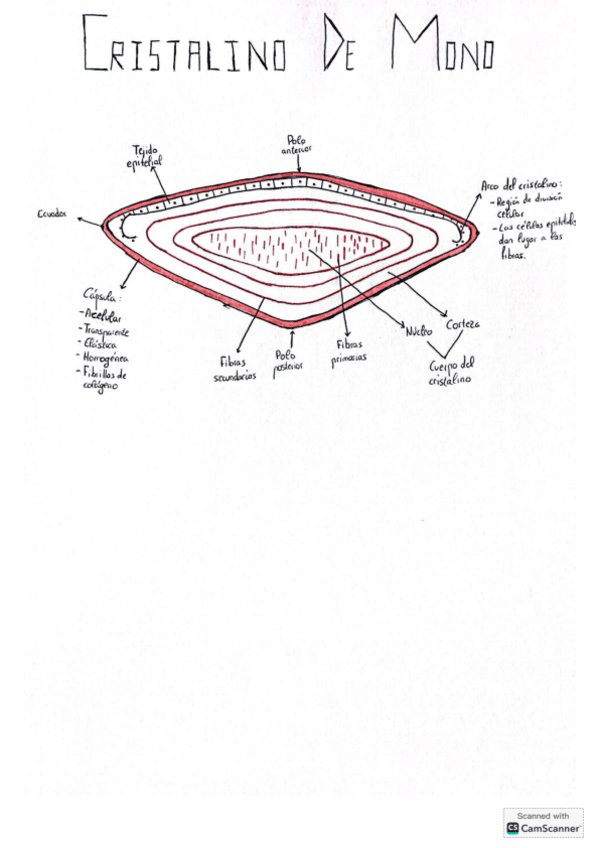 CRISTALINO DE MONO
Polo
anterior
Tejido
epitelial
Arco del cristalino:
- Región de división
celular
- Las células epiteliales
dan lugar a las
fibras.
Ecuador
Cápsula:
- Acelular
- Transparente
- Elástica
- Homogénea
- Fibrillas de
colágeno
Fibras
secundarias
Polo
posterior
Fibras
primarias
Núcleo
Corteza
Cuerpo del
cristalino
Scanned with
CS CamScanner